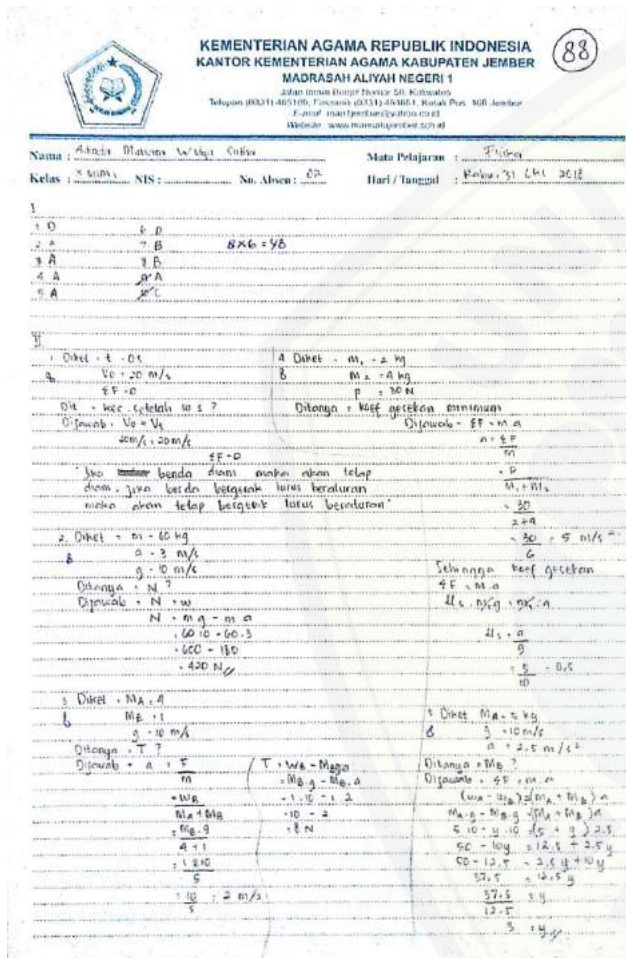 KEMENTERIAN AGAMA REPUBLIK INDONESIA
KANTOR KEMENTERIAN AGAMA KABUPATEN JEMBER
MADRASAH ALIYAH NEGERI 1
88
Jalan Imam Bonjol Nomor 50, Kaliwates
Nama :
Mata Pelajaran : Fisika
Kelas : NIS : No. Absen : 02
Hari / Tanggal : Rabu, 31 Okt 2018
I
1 D
2 A
3 A
4 A
5 A
6 D
7 B
8 B
9 A
10 C
8x6 = 48
II
1 Diket = t = 0s
8 V0 = 20 m/s
ΣF = 0
Dit = kec. setelah 10 s ?
Dijawab : V0 = Vt
20 m/s = 20 m/s
ΣF = 0
"Jika benda diam maka akan tetap
diam, jika benda bergerak lurus beraturan
maka akan tetap bergerak lurus beraturan"
2. Diket = m = 60 kg
8 a = 3 m/s
g = 10 m/s
Ditanya = N ?
Dijawab = N = w
N = m g - m a
= 60.10 - 60.3
= 600 - 180
= 420 N
3 Diket = MA = 4
8 MB = 1
g = 10 m/s
Ditanya = T ?
Dijawab = a = F
m
= WB
MA + MB
= MB . g
4 + 1
= 1 . 10
5
= 10 = 2 m/s
5
= MB . g - MB . a
= 1 . 10 - 1 . 2
= 10 - 2
= 8 N
4 Diket = m1 = 2 kg
8 m2 = 4 kg
P = 30 N
Ditanya = koef gesekan minimum
Dijawab = ΣF = m . a
a = ΣF
m
= P
M1 + M2
= 30
2+4
= 30 = 5 m/s²
6
Sehingga koef gesekan
ΣF = m . a
μs . m . g = m . a
μs = a
g
= 5 = 0,5
10
5 Diket MA = 5 kg
8 g = 10 m/s
a = 2.5 m/s²
Ditanya = MB ?
Dijawab = ΣF = m . a
(WA - WB) = (MA + MB) a
MA . g - MB . g = (MA + MB) a
5 . 10 - y . 10 = (5 + y) 2.5
50 - 10y = 12.5 + 2.5 y
50 - 12.5 = 2.5 y + 10 y
37.5 = 12.5 y
37.5 = y
12.5
3 = y